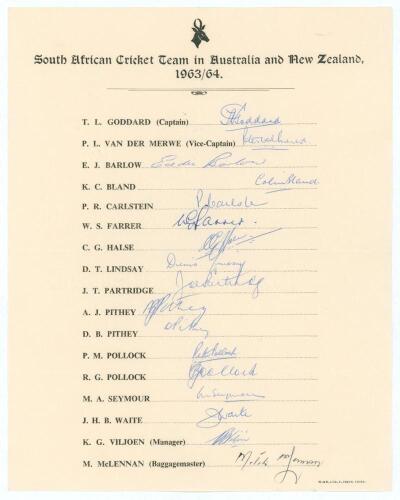 South African Cricket Team in Australia and New Zealand,
1963/64.
T. L. GODDARD (Captain) T L Goddard
P. L. VAN DER MERWE (Vice-Captain)
E. J. BARLOW Eddie Barlow
K. C. BLAND Colin Bland
P. R. CARLSTEIN P Carlstein
W. S. FARRER W S Farrer
C. G. HALSE
D. T. LINDSAY Denis Lindsay
J. T. PARTRIDGE Joe Partridge
A. J. PITHEY A J Pithey
D. B. PITHEY D Pithey
P. M. POLLOCK Peter Pollock
R. G. POLLOCK R G Pollock
M. A. SEYMOUR M Seymour
J. H. B. WAITE J Waite
K. G. VILJOEN (Manager)
M. McLENNAN (Baggagemaster)